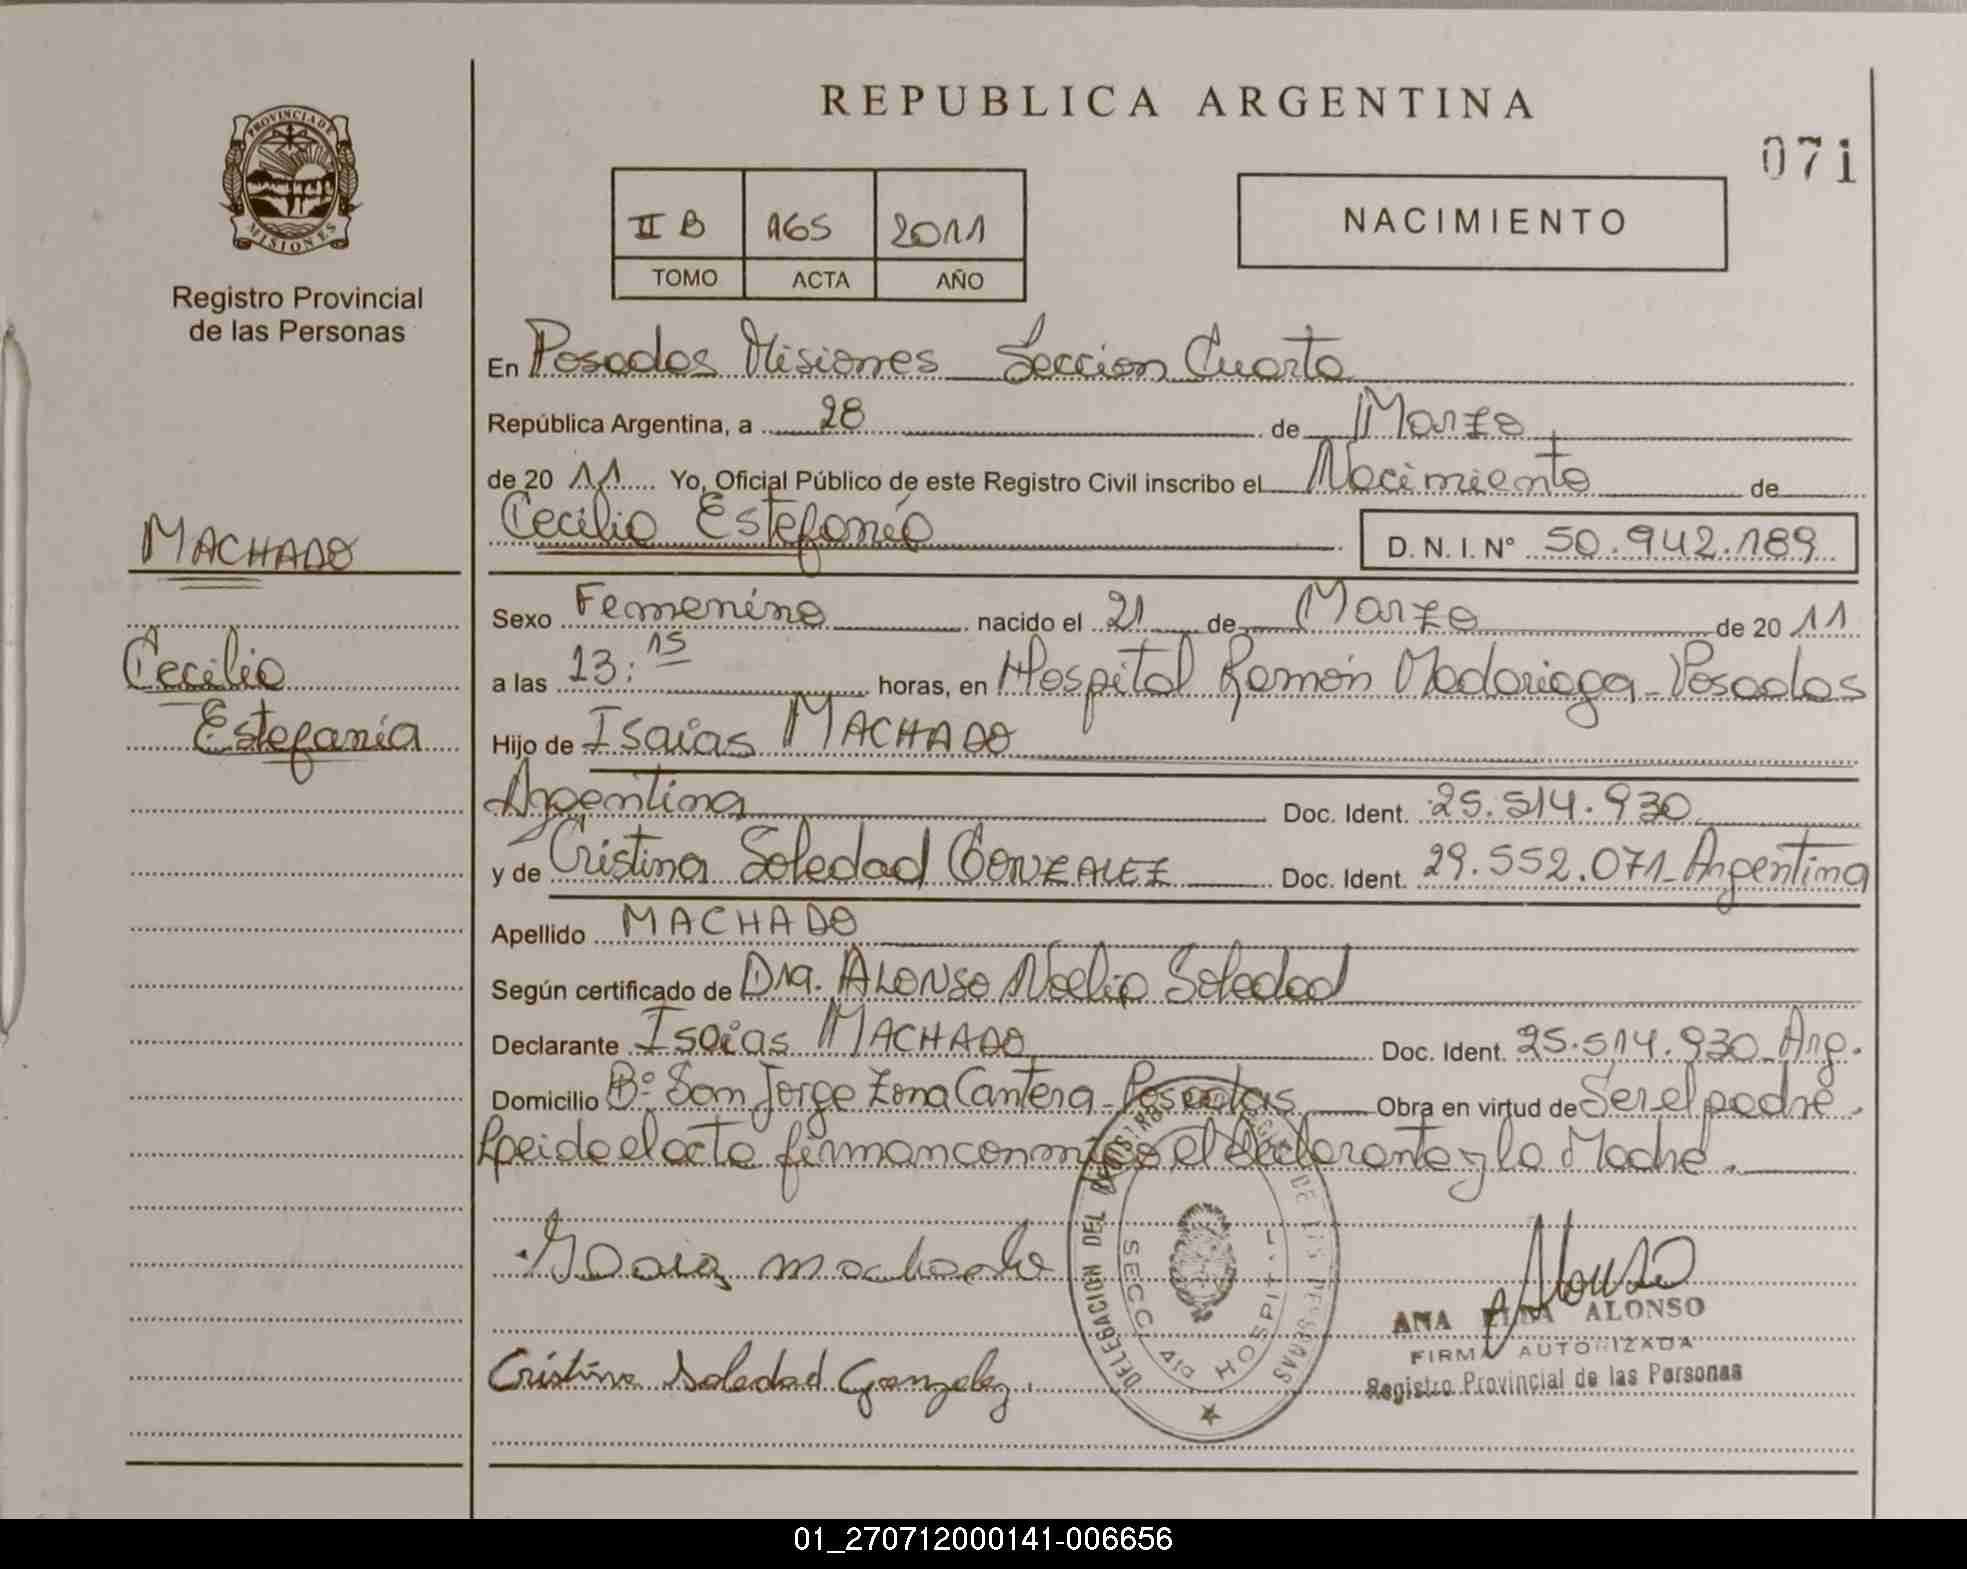 REPUBLICA ARGENTINA
071
PROVINCIA DE MISIONES
Registro Provincial
de las Personas
II B 165 2011
TOMO ACTA AÑO
NACIMIENTO
En Posadas Misiones Seccion Cuarta
República Argentina, a 28 de Marzo
de 20 11 Yo, Oficial Público de este Registro Civil inscribo el Nacimiento de
Cecilia Estefanía
D. N. I. Nº 50.942.189
MACHADO
Cecilia
Estefanía
Sexo Femenino nacido el 21 de Marzo de 20 11
a las 13:15 horas, en Hospital Ramón Madariaga - Posadas
Hijo de Isaias MACHADO
Argentina Doc. Ident. 25.514.930
y de Cristina Soledad GONZALEZ Doc. Ident. 29.552.071 - Argentina
Apellido MACHADO
Según certificado de Dra. ALONSO Noelia Soledad
Declarante Isaias MACHADO Doc. Ident. 25.514.930 - Arg.
Domicilio Bº San Jorge Zona Cantera - Posadas Obra en virtud de Ser el padre.
Leido el acta firman conmigo el declarante y la Madre.
Isaias machado
Cristina Soledad Gonzalez.
DELEGACION DEL REGISTRO DE LAS PERSONAS
SECC. 4ta HOSPITAL
Alonso
ANA ELBA ALONSO
FIRMA AUTORIZADA
Registro Provincial de las Personas
01_270712000141-006656